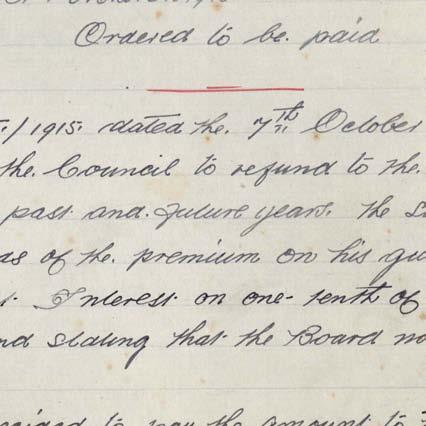 Ordered to be paid
/1915. dated the 7th October
the Council to refund to the
past and future years. the
of the premium on his
Interest on one-tenth of
stating that the Board
to pay the amount to